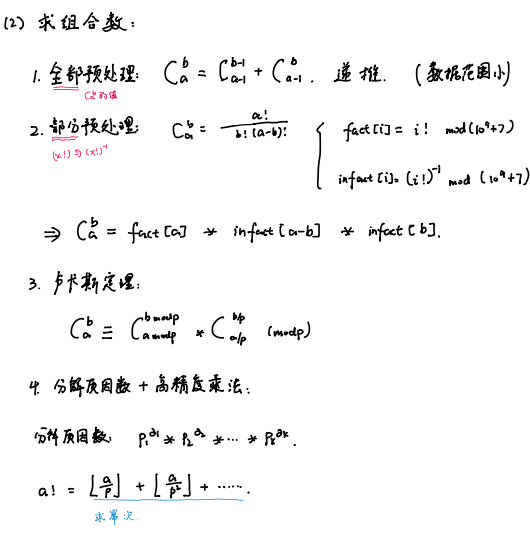 (2) 求组合数:
1. 全部预处理: C_a^b = C_{a-1}^{b-1} + C_{a-1}^b . 递推. (数据范围小)
C_a^b 的值
2. 部分预处理: C_a^b = a! / b!(a-b)! { fact[i] = i! mod(10^9+7)
(x!) 与 (x!)^{-1}
infact[i] = (i!)^{-1} mod (10^9+7)
⇒ C_a^b = fact[a] * infact[a-b] * infact[b].
3. 卢卡斯定理:
C_a^b ≡ C_{a mod p}^{b mod p} * C_{a/p}^{b/p} (mod p)
4. 分解质因数 + 高精度乘法:
分解质因数: P_1^{a_1} * P_2^{a_2} * ... * P_k^{a_k}.
a! = ⌊a/p⌋ + ⌊a/p^2⌋ + ……
求幂次.